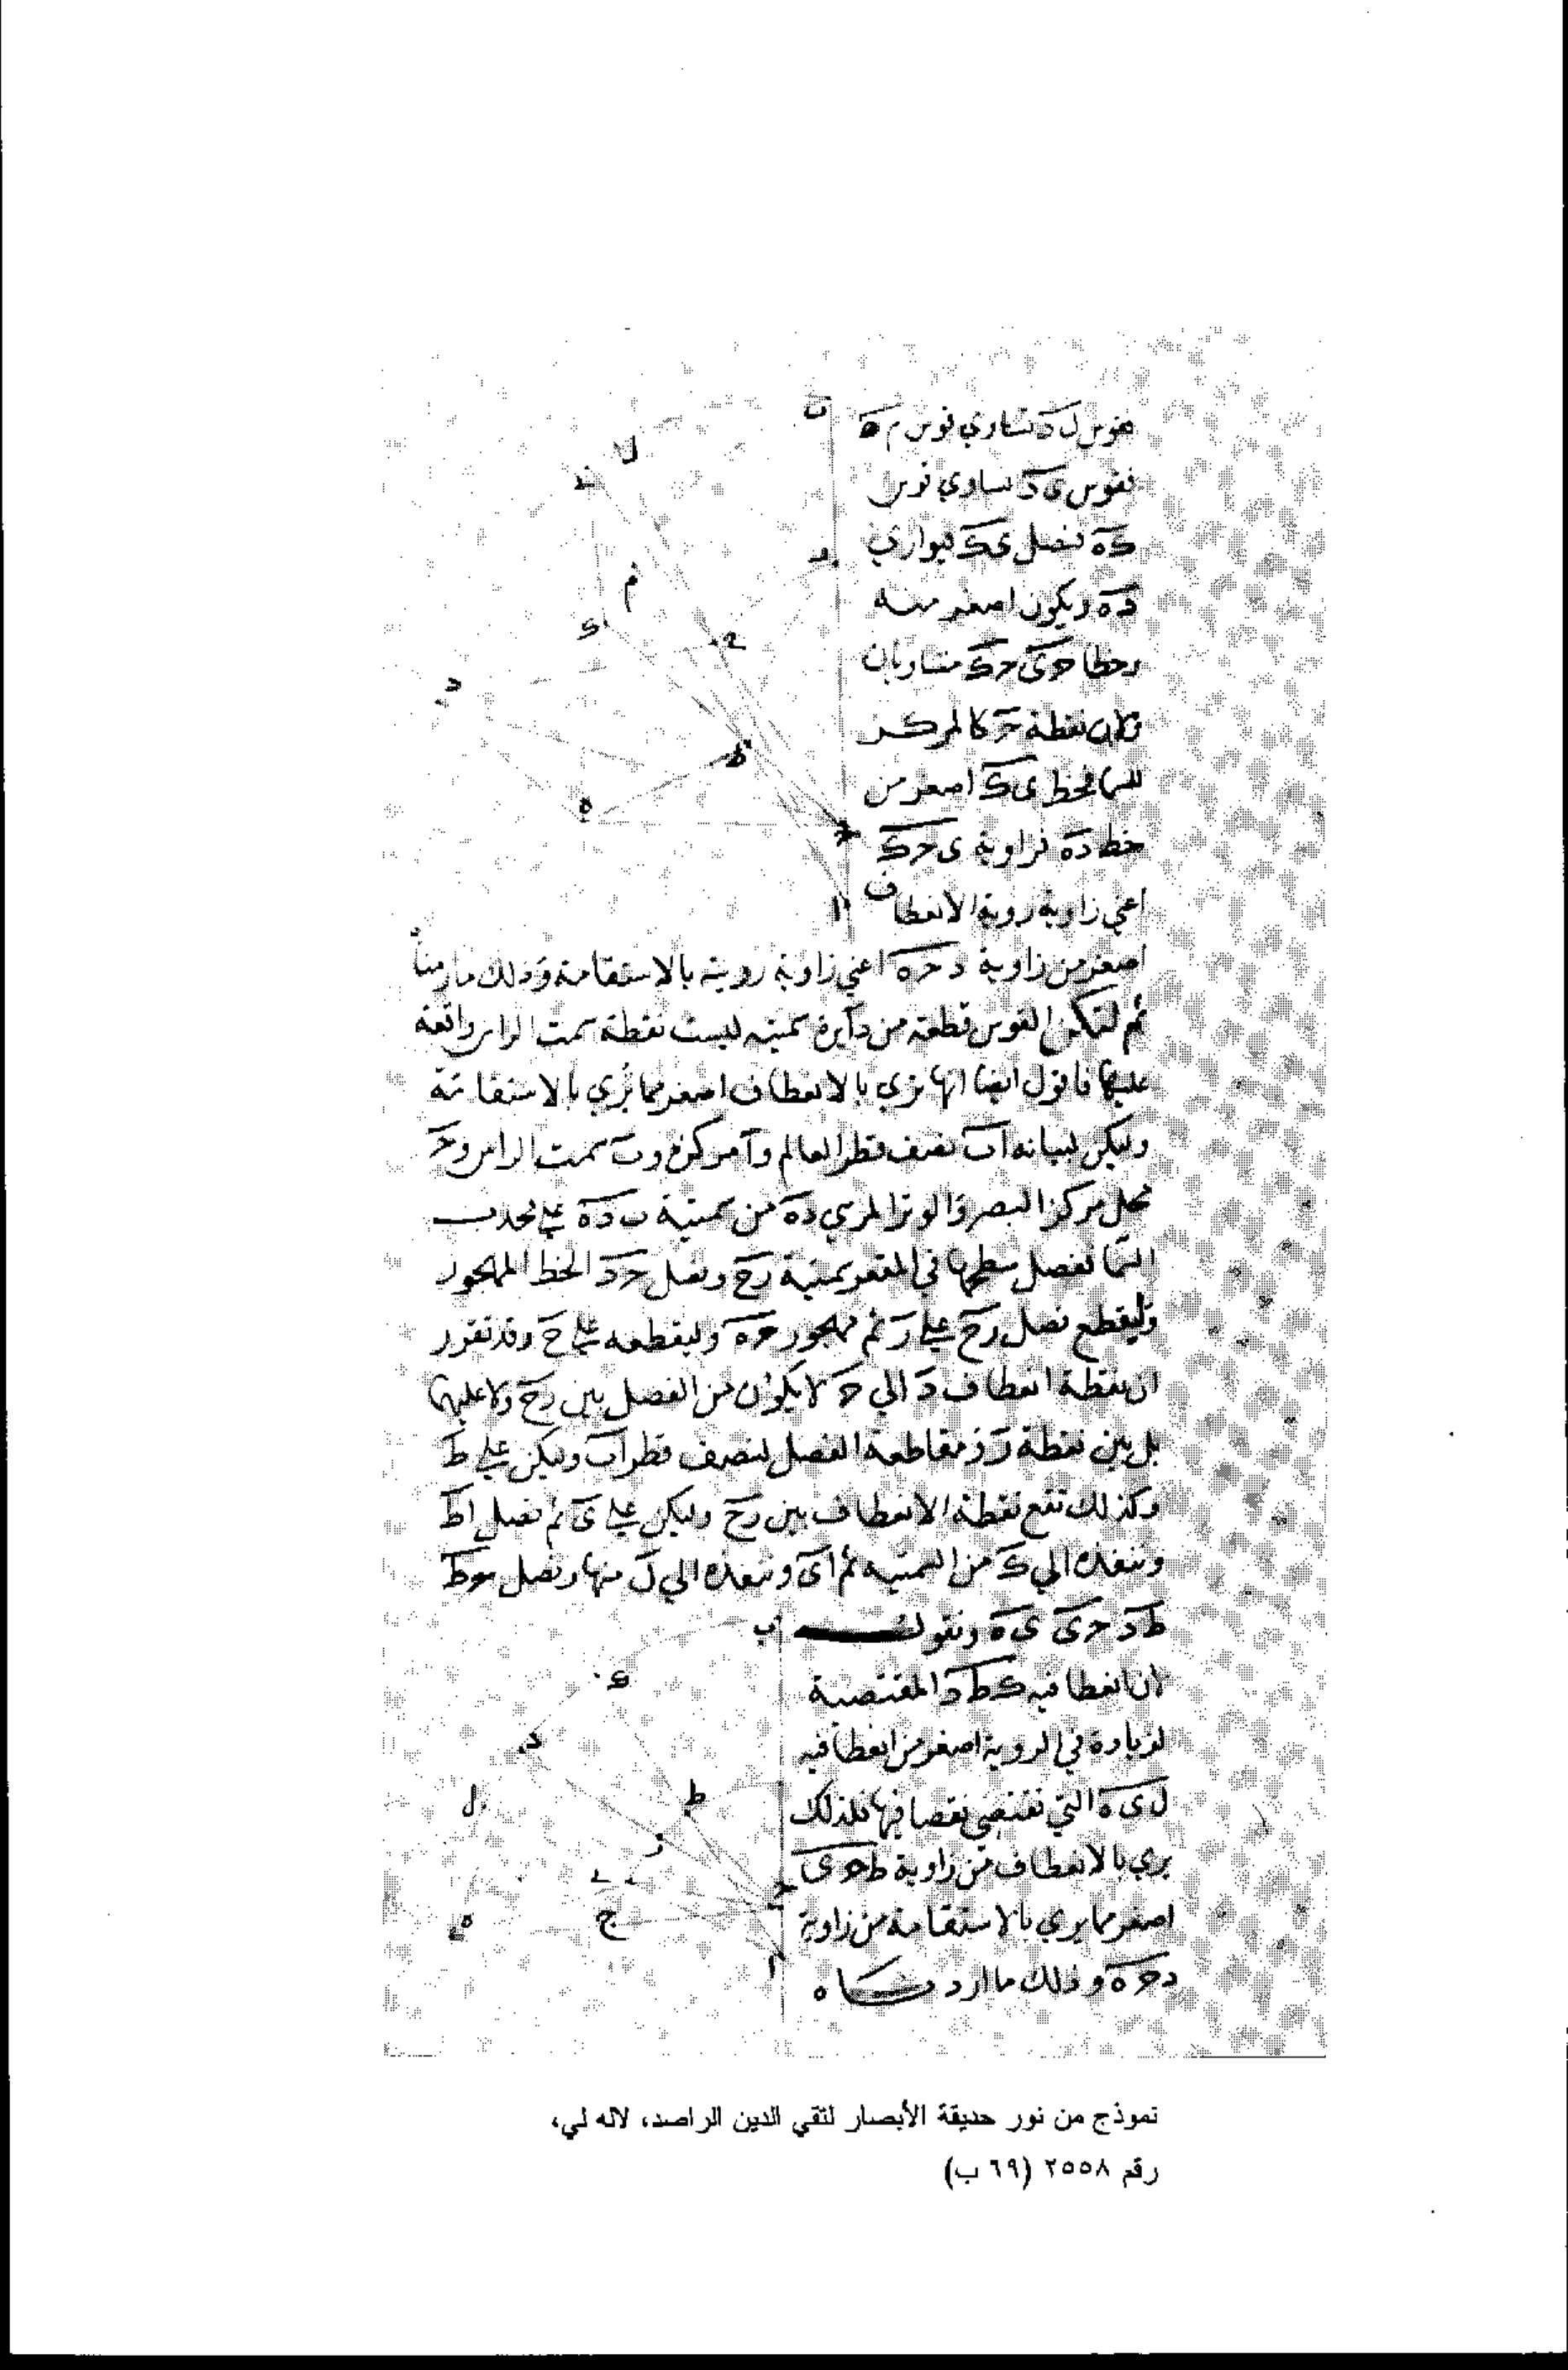 فقوس ل د تساوي قوس م ه
فقوس ى د تساوي قوس
ك ه فنصل ى ك فيوازي
د ه ويكون اصغر منه
وخطا ح ى ح ك متساويان
لان نقطة ح كالمركز
للسما فخط ى ك اصغر من
خط د ه فزاوية ى ح ك
اعني زاوية روية الانعطاف
اصغر من زاوية د ح ه اعني زاوية رويته بالاستقامة وذلك ما رمنا
ثم لتكن القوس قطعة من دآيرة سمتيه ليست نقطة سمت الراس واقعة
عليها فاقول ايضا انها تري بالانعطاف اصغر مما يري بالاستقامة
وليكن لبيانه ا ب نصف قطر العالم و ا مركزه و ب سمت الراس و ح
محل مركز البصر والوتر المري د ه من سمتية ب د ه علي محدب
السما نفصل سطحها في المقعر سمتية ر ح ونصل ح د الخط المهجور
وليقطع فصل ر ح علي ر ثم مهجور ح ه وليقطعه علي ح وقد تقرر
ان نقطة انعطاف د الي ح لا يكون من الفصل بين ر ح ولا عليهما
بل بين نقطة ر و مقاطعة الفصل لنصف قطر ا ب وليكن علي ط
وكذلك تقع نقطة الانعطاف بين ر ح وليكن علي ى ثم نصل ا ط
وننفذه الي ك من السمتيه ثم ا ى وننفذه الي ل منها ونصل ح ط
ط د ح ى ى ه ونقول
لان انعطافيه ك ط د المقتضية
لزيادة في الروية اصغر من انعطافيه
ل ى ه التي تقتضي نقصا فيها فلذلك
يري بالانعطاف من زاوية ط ح ى
اصغر مما يري بالاستقامة من زاوية
د ح ه وذلك ما اردناه
نموذج من نور حديقة الأبصار لتقي الدين الراصد، لاله لي،
رقم ٢٥٥٨ (٦٩ ب)